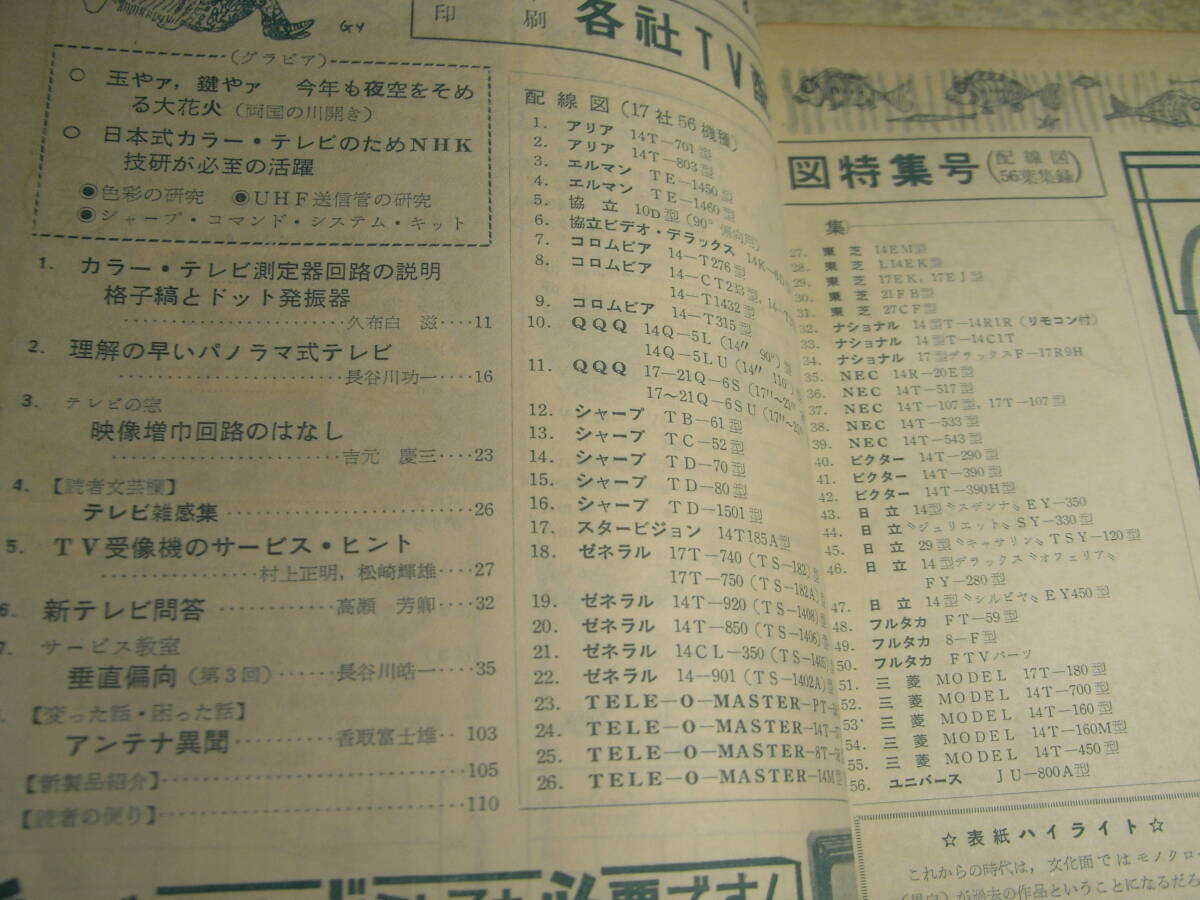 GY
印 刷 各社TV
(グラビア)
○ 玉やァ,鍵やァ 今年も夜空をそめ
る大花火(両国の川開き)
○ 日本式カラー・テレビのためNHK
技研が必至の活躍
◉色彩の研究 ◉UHF送信管の研究
◉シャープ・コマンド・システム・キット
1. カラー・テレビ測定器回路の説明
格子縞とドット発振器
久布白 滋……11
2. 理解の早いパノラマ式テレビ
長谷川功一……16
3. テレビの窓
映像増巾回路のはなし
吉元 慶三……23
4. 【読者文芸欄】
テレビ雑感集……26
5. TV受像機のサービス・ヒント
村上正明,松崎輝雄……27
6. 新テレビ問答……高瀬 芳卿……32
7. サービス教室
垂直偏向(第3回)……長谷川皓一……35
【変った話・困った話】
アンテナ異聞……香取富士雄‥103
【新製品紹介】……105
【読者の便り】……110
配線図(17社56機種)
1. アリア 14T—701型
2. アリア 14T—803型
3. エルマン TE—1450型
4. エルマン TE—1460型
5. 協立 10D型(90°偏向用)
6. 協立ビデオ・デラックス 14K—
7. コロムビア 14—T276型
8. コロムビア 14—CT233型,14—
14—T1432型
9. コロムビア 14—T315型
10. QQQ 14Q—5L(14″ 90°)型
14Q—5LU(14″ 110°)型
11. QQQ 17—21Q—6S(17″~21″
17~21Q—6SU(17″~21″
12. シャープ TB—61型
13. シャープ TC—52型
14. シャープ TD—70型
15. シャープ TD—80型
16. シャープ TD—1501型
17. スタービジョン 14T185A型
18. ゼネラル 17T—740(TS—182)型
17T—750(TS—182A)型
19. ゼネラル 14T—920(TS—1408)型
20. ゼネラル 14T—850(TS—1406)型
21. ゼネラル 14CL—350(TS—1405)型
22. ゼネラル 14—901(TS—1402A)型
23. TELE—O—MASTER—PT—
24. TELE—O—MASTER—14T—
25. TELE—O—MASTER—8T—
26. TELE—O—MASTER—14M型
図特集号(配線図56葉集録)
集
27. 東芝 14EM型
28. 東芝 L14EK型
29. 東芝 17EK,17EJ型
30. 東芝 21FB型
31. 東芝 27CF型
32. ナショナル 14型T—14R1R(リモコン付)
33. ナショナル 14型T—14C1T
34. ナショナル 17型デラックスF—17R9H
35. NEC 14R—20E型
36. NEC 14T—517型
37. NEC 14T—107型,17T—107型
38. NEC 14T—533型
39. NEC 14T—543型
40. ビクター 14T—290型
41. ビクター 14T—390型
42. ビクター 14T—390H型
43. 日立 14型〝スザンナ〟EY—350
44. 日立〝ジュリエット〟SY—330型
45. 日立 29型〝キャサリン〟TSY—120型
46. 日立 14型デラックス〝オフェリア〟
FY—280型
47. 日立 14型〝シルビヤ〟EY450型
48. フルタカ FT—59型
49. フルタカ 8—F型
50. フルタカ FTVパーツ
51. 三菱 MODEL 17T—180型
52. 三菱 MODEL 14T—700型
53. 三菱 MODEL 14T—160型
54. 三菱 MODEL 14T—160M型
55. 三菱 MODEL 14T—450型
56. ユニバース JU—800A型
☆表紙ハイライト☆
これからの時代は,文化面ではモノクロ
(黒白)が過去の作品ということになるだろ
必要です!